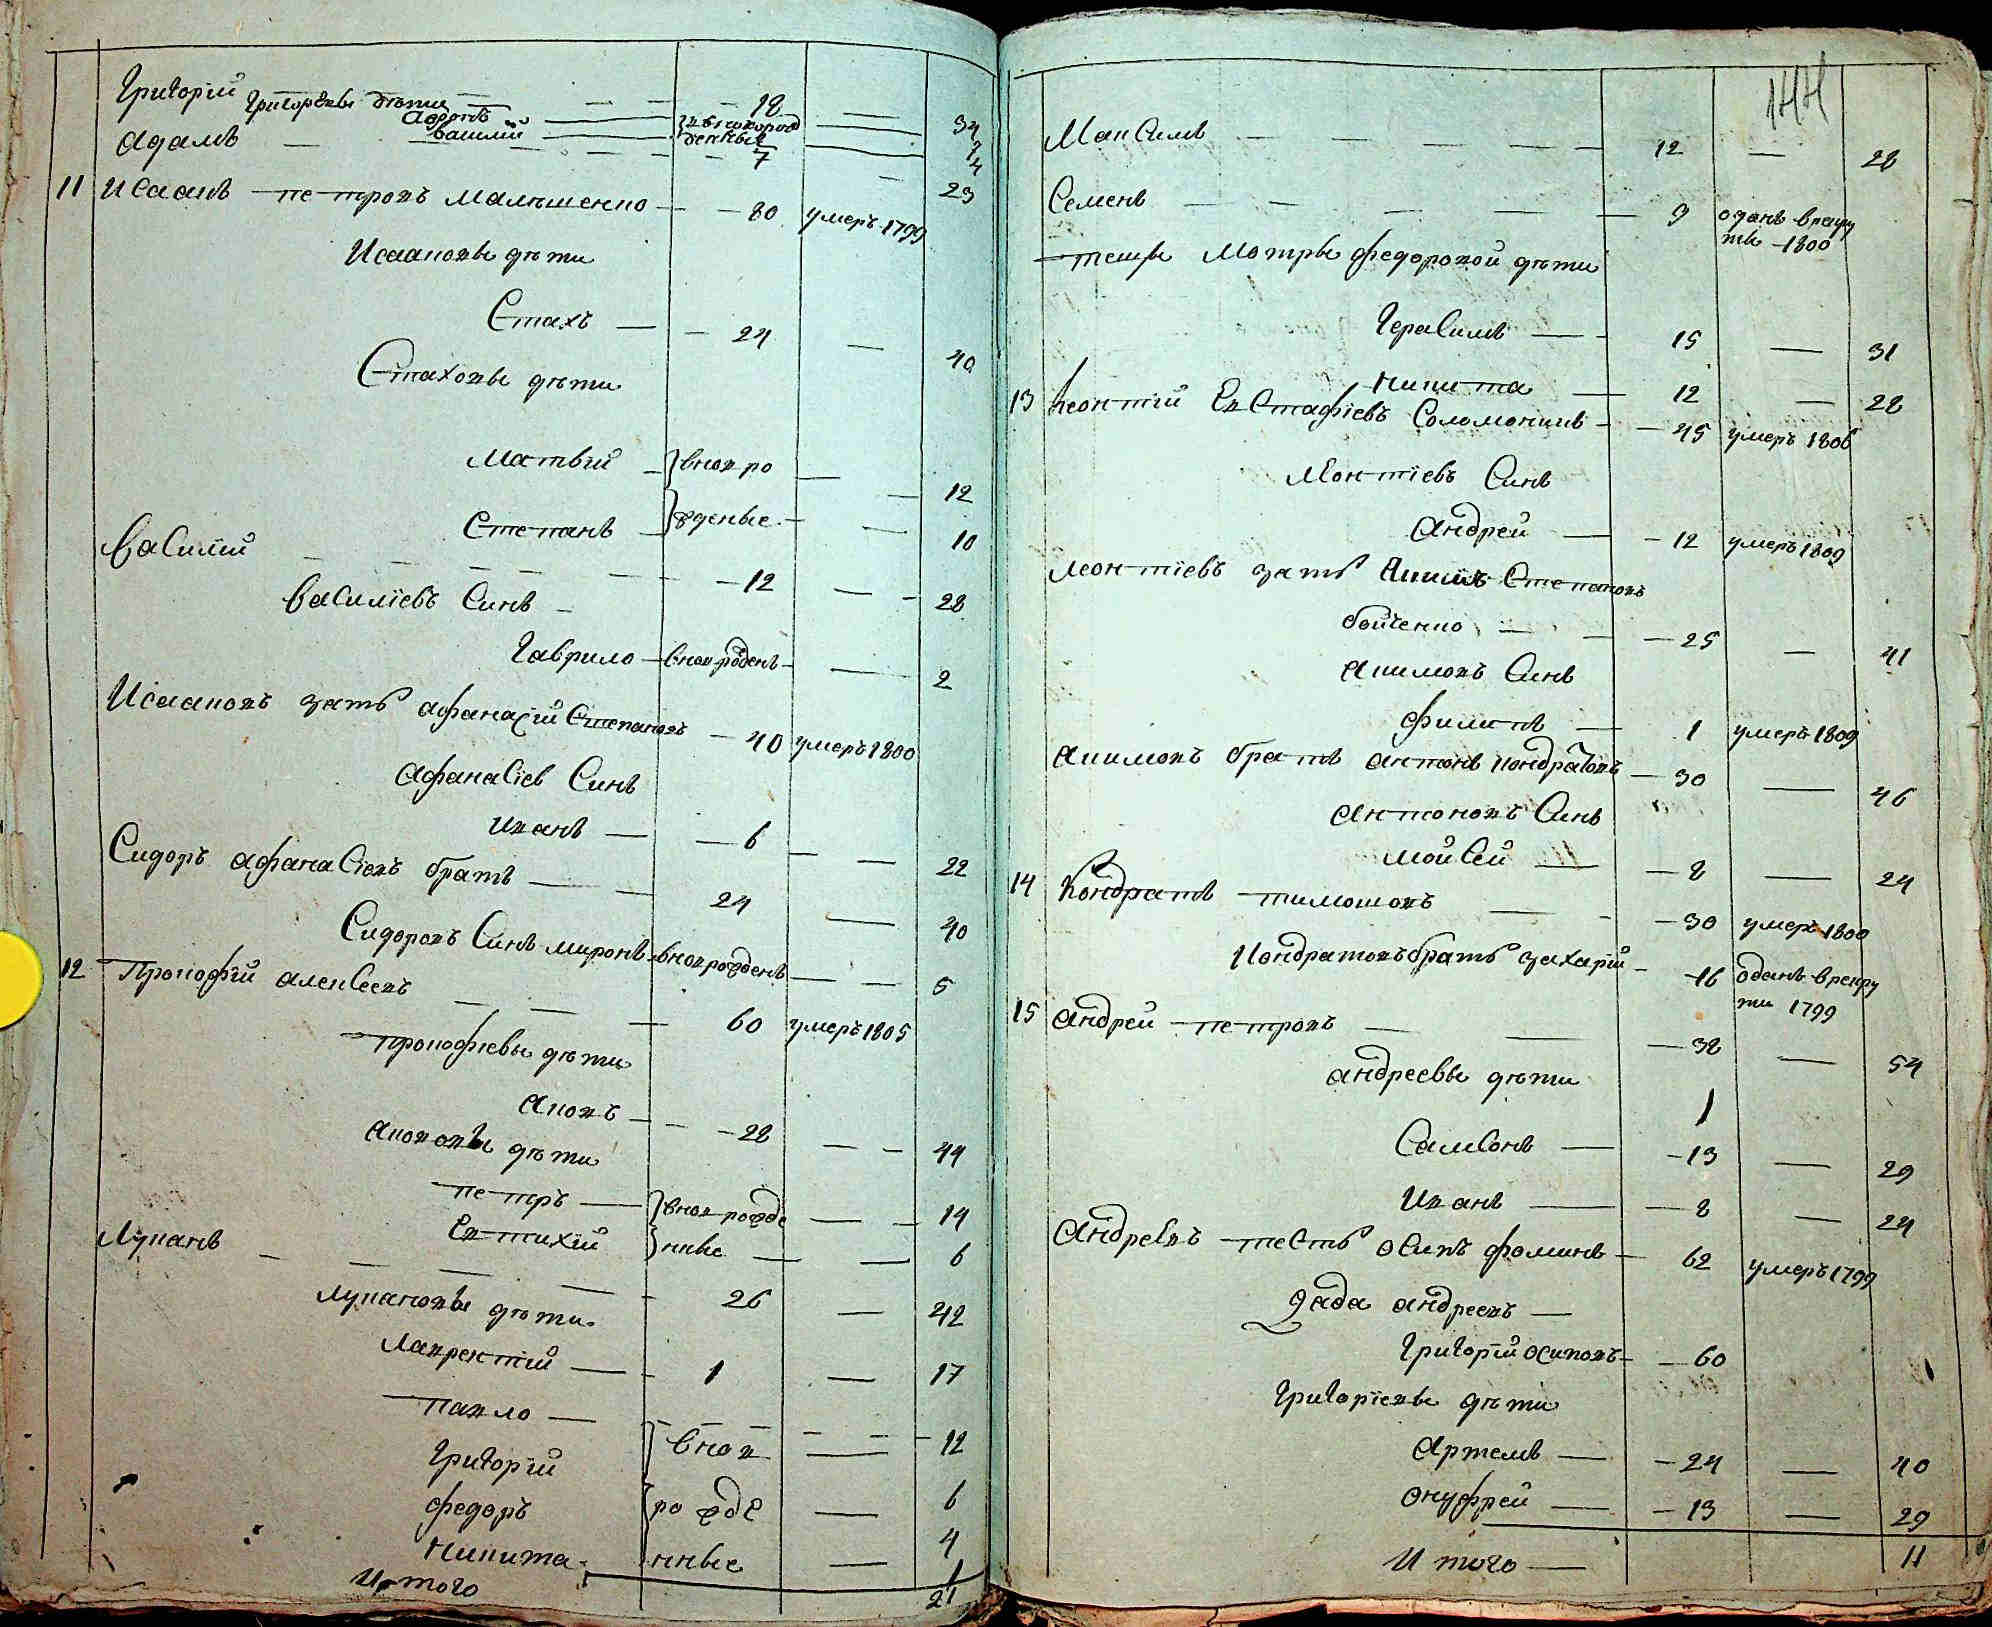 Григорій — 18 — 34
Григорьевы дѣти
Афонъ — 7
Василій — 4
вновьрожденные
Адамъ — 7 — 23
11 Исаакъ петровъ Малышенко — 80 умеръ 1799
Исааковы дѣти
Стахъ — 24 — 40
Стаховы дѣти
Матвій — вновь ро — 12
Степанъ — жденые — 10
Василій — 12 — 28
Василіевъ Синъ
Гаврило — вновь рожденъ — 2
Исааковъ зать Афанасій Степановъ — 40 умеръ 1800
Афанасіев Синъ
Иванъ — 6 — 22
Сидоръ Афанасіевъ братъ — 24 — 40
Сидоровъ Синъ миронъ — вновьрожденъ — 5
12 Прокофій алексеевъ — 60 умеръ 1805
Прокофіевы дѣти
Аковъ — 28 — 44
Аковавы дѣти
петръ — вновь рожде — 14
Евтихій — нные — 6
Лукянъ — 26 — 42
Лукяновы дѣти
Лаврентій — 1 — 17
Павло — 12
Григорій — внов — 6
федоръ — ро жде — 4
Никита — нные — 1
Итого 21
144
Максимъ — 12 — 28
Семенъ — 9 отданъ врекру
ты 1800
тещи Мотры федоровой дѣти
Герасимъ — 15 — 31
Никита — 12 — 28
13 Леонтій Евстафіевъ Соломонинъ — 45 умеръ 1806
Леонтіевъ Синъ
Андрей — 12 умеръ 1809
Леонтіевъ зать Акимъ Степановъ
бойченко — 25 — 41
Акимовъ Синъ
филипъ — 1 умеръ 1809
Акимовъ братъ антонъ кондратовъ — 30 — 46
Антоновъ Синъ
Мойсей — 8 — 24
14 Кондратъ тимошовъ — 30 умеръ 1800
Кондратовъ братъ захарій — 16 отданъ врекру
ти 1799
15 Андрей петровъ — 38 — 54
андреевы дѣти
Самсонъ — 13 — 29
Иванъ — 8 — 24
Андреевъ тесть Осипъ фоминъ — 62 умеръ 1799
Дядя андреевъ —
Григорій осиповъ — 60
Григоріевы дѣти
Артемъ — 24 — 40
Онуфрей — 13 — 29
Итого — 11